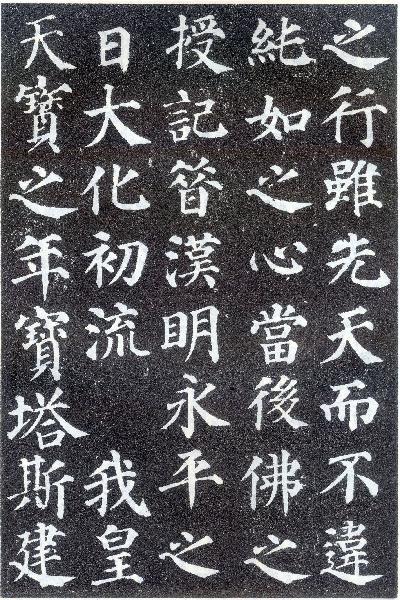 之行雖先天而不違
純如之心當後佛之
授記昔漢明永平之
日大化初流　我皇
天寶之年寶塔斯建